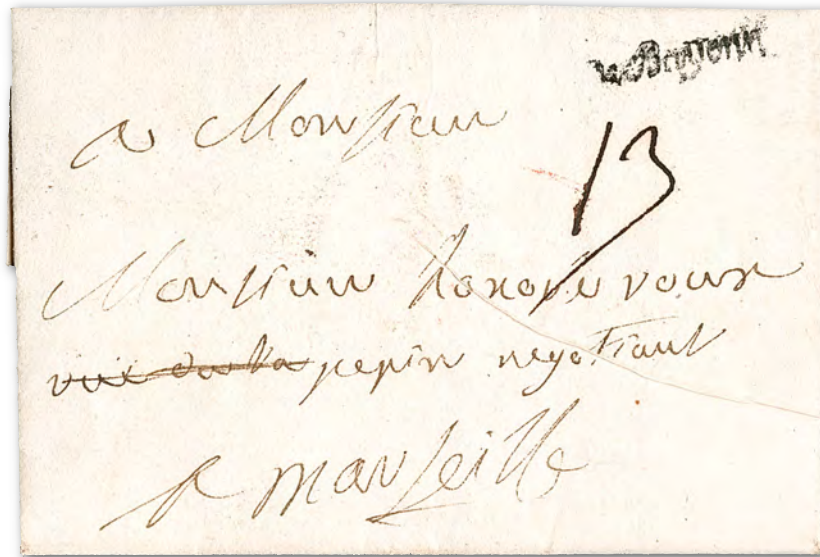 De Bayonne
a Monsieur
13
Monsieur honoré roux
pepin negotiant
A marseille